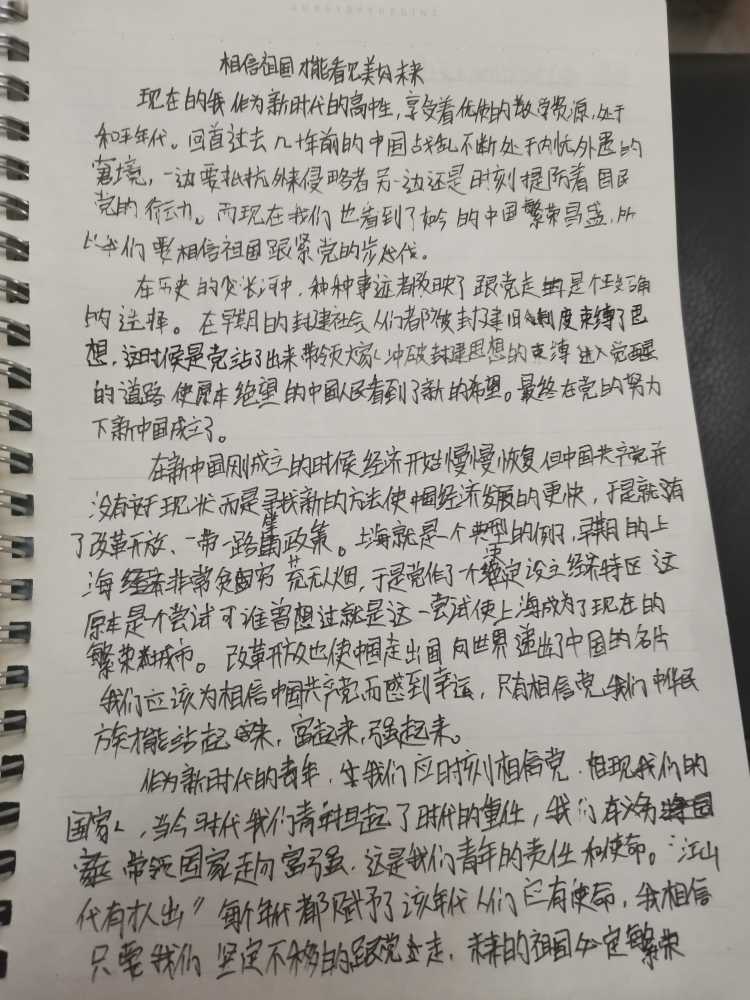 相信祖国才能看见美好未来
现在的我作为新时代的高中生，享受着优使的教学资源，处于
和平年代。回首过去几十年前的中国战乱不断处于内忧外患的
窘境，一边要抵抗外来侵略者另一边还是时刻提防着国民
党的行动。而现在我们也看到了如今的中国繁荣昌盛，所
以我们要相信祖国跟紧党的步伐。
在历史的长河中，种种事迹都反映了跟党走的是个正确
的选择。在早期的封建社会人们都被封建旧制度束缚了思
想，这时候是党站了出来带领大家冲破封建思想的束缚进入觉醒
的道路使原本绝望的中国人民看到了新的希望。最终在党的努力
下新中国成立了。
在新中国刚成立的时候经济开始慢慢恢复但中国共产党并
没有安于现状而是寻找新的方法使中国经济发展的更快，于是就有
了改革开放、一带一路等政策。上海就是一个典型的例子，早期的上
海非常贫穷荒无人烟，于是党作了个决定设立经济特区这
原本是个尝试可谁曾想过就是这一尝试使上海成为了现在的
繁荣城市。改革开放也使中国走出国向世界递出了中国的名片
我们应该为相信中国共产党而感到幸运，只有相信党我们中华民
族才能站起来，富起来，强起来。
作为新时代的青年，我们应时刻相信党，相现我们的
国家，当今时代我们青年担起了时代的重任，我们有义务
带领国家走向富强，这是我们青年的责任和使命。“江山
代有才人出”每个年代都赋予了该年代人们应有使命，我相信
只要我们坚定不移的跟党走，未来的祖国必定繁荣